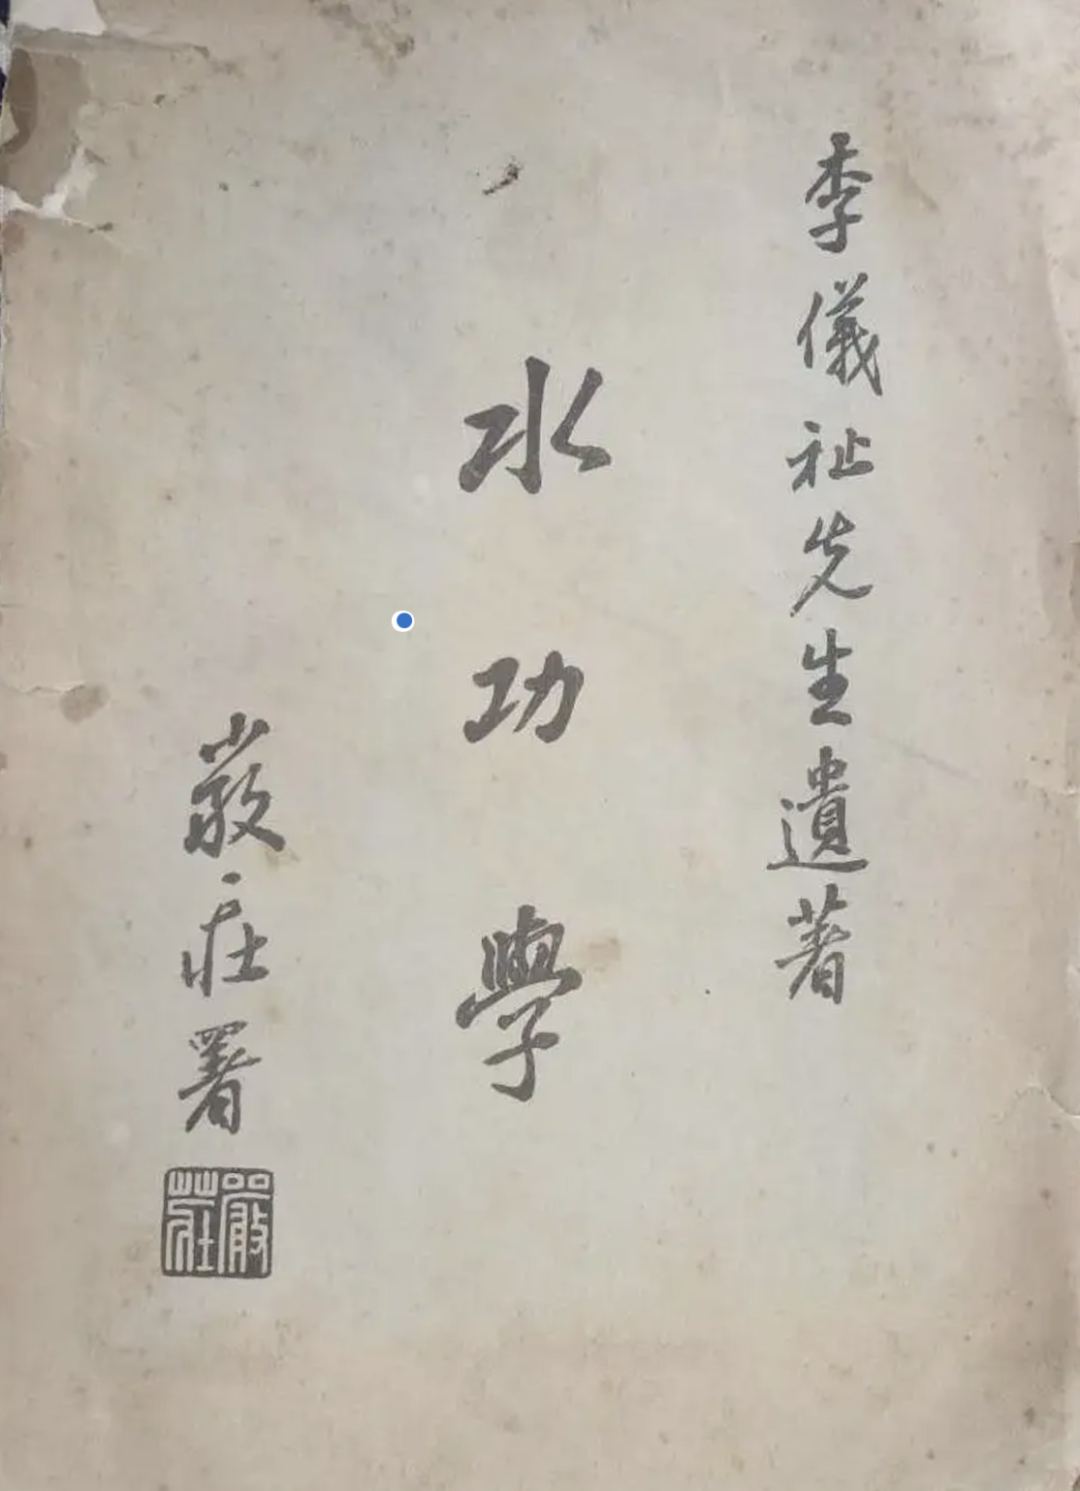 李儀祉先生遺著
水功學
嚴莊署
嚴莊